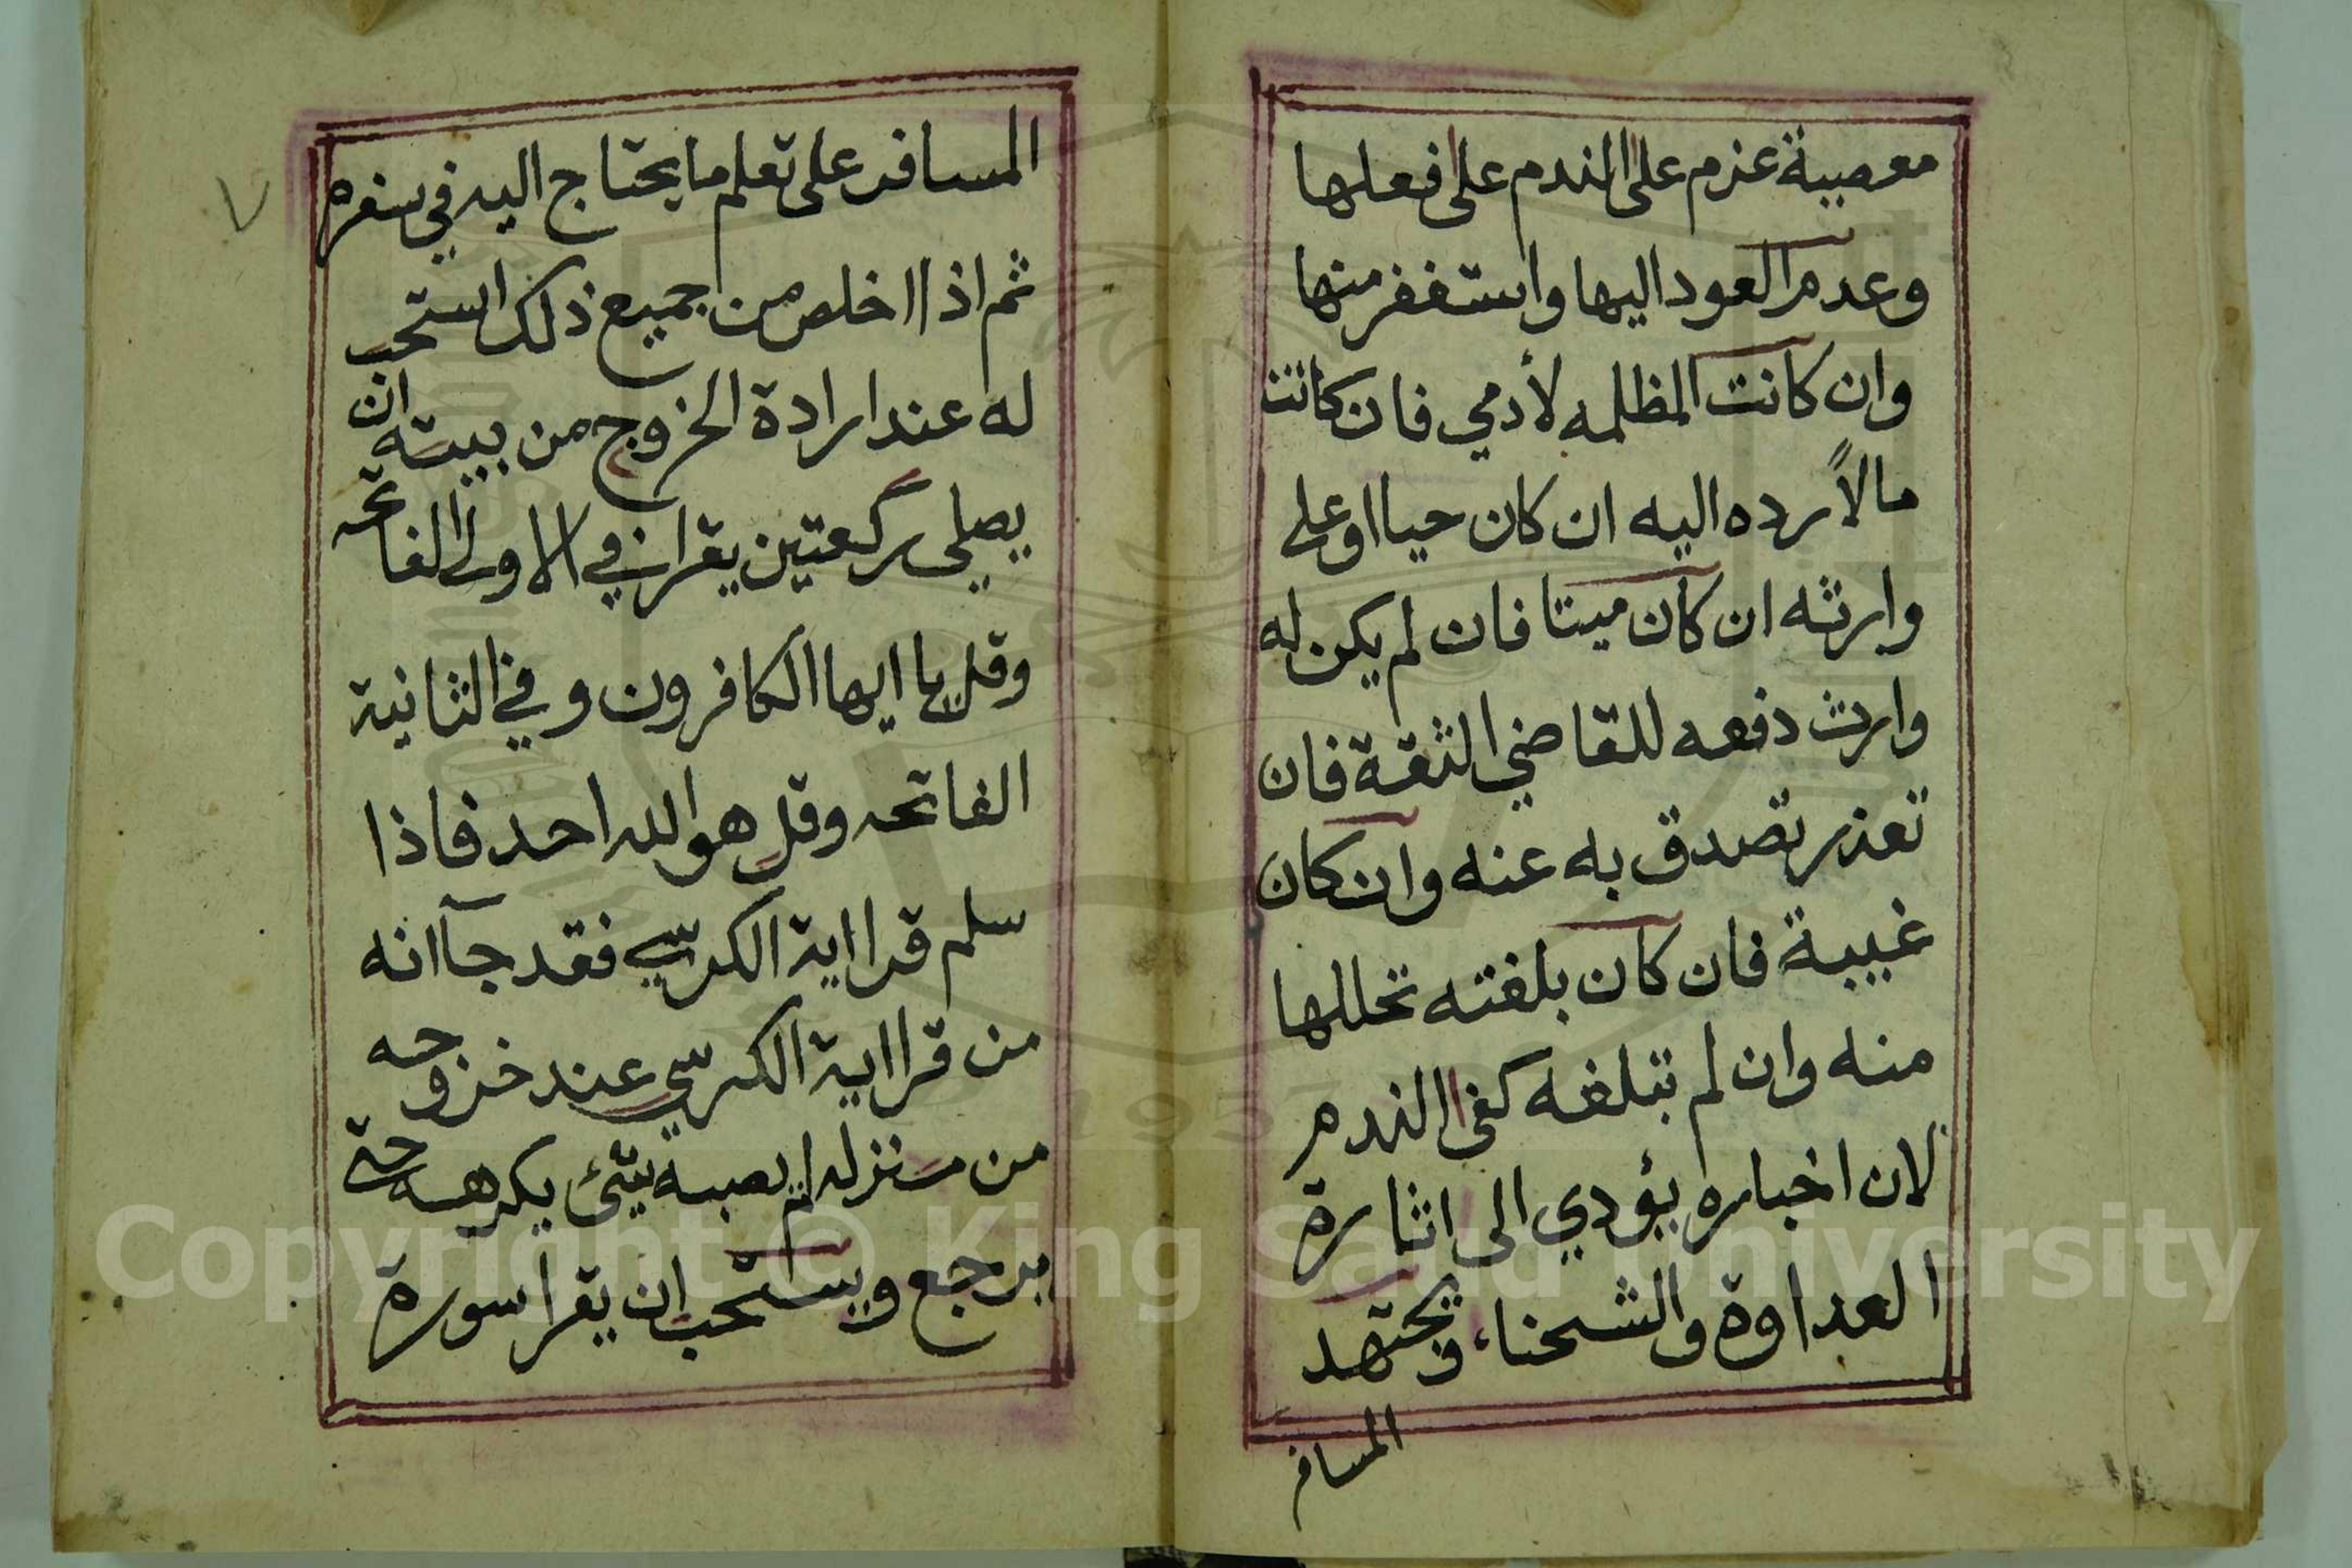 معصية عزم على الندم على فعلها
وعدم العود اليها واستغفر منها
وان كانت المظلمه لأدمي فان كانت
مالاً رده اليه ان كان حيا او على
وارثه ان كان ميتا فان لم يكن له
وارث دفعه للقاضي الثقة فان
تعذر تصدق به عنه وان كان
غيبة فان كان بلغته تحللها
منه وان لم تبلغه كفى الندم
لان اخباره يؤدي الى اثارة
العداوة والشحناء ويجتهد
المسافر
٧
المسافر على تعلم ما يحتاج اليه في سفره
ثم اذا اخلص من جميع ذلك استحب
له عند ارادة الخروج من بيته ان
يصلي ركعتين يقرا في الاولى الفاتحه
وقل يا ايها الكافرون وفي الثانية
الفاتحه وقل هو الله احد فاذا
سلم قرا اية الكرسي فقد جآ انه
من قرا اية الكرسي عند خروجه
من منزله لم يصبه شئ يكرهه حتى
يرجع ويستحب ان يقرا سورة
Copyright © King Saud University
1957